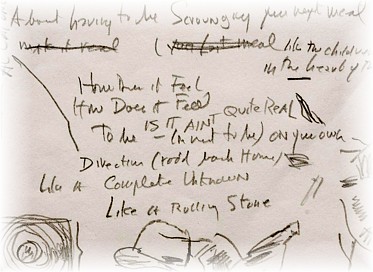 About having to be Scrounging your next meal
make it real (your last meal like the children
in the
How Does it Feel
How Does it Feel
IS IT AIN'T QUITE REAL
To be (is not to be) ON your own
Direction (road back Home)
Like A Complete Unknown
Like A Rolling Stone